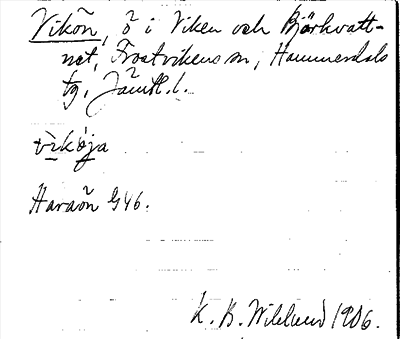 Vikön, ö i Viken och Björkvatt-
net, Frostvikens sn, Hammerdals
tg, Jämtl. l.
vìkö̀ja
Haraön G46.
K. B. Wiklund 1906.